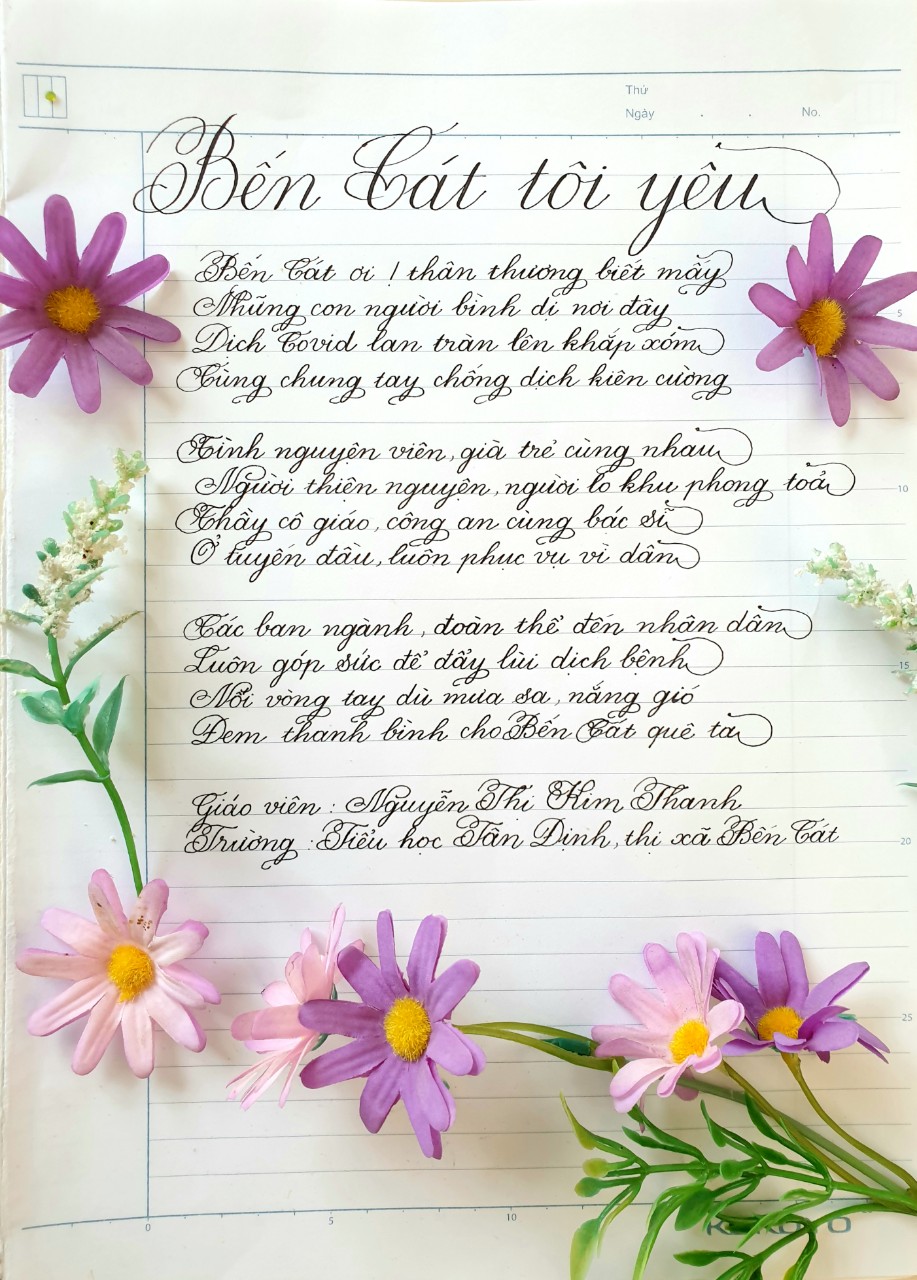 Thứ
Ngày . . No.
Bến Cát tôi yêu
Bến Cát ơi ! thân thương biết mấy
Những con người bình dị nơi đây
Dịch Covid lan tràn lên khắp xóm
Cùng chung tay chống dịch kiên cường
Tình nguyện viên, già trẻ cùng nhau
Người thiên nguyện, người lo khu phong toả
Thầy cô giáo, công an cùng bác sĩ
Ở tuyến đầu, luôn phục vụ vì dân
Các ban ngành, đoàn thể đến nhân dân
Luôn góp sức để đẩy lùi dịch bệnh
Nối vòng tay dù mưa sa, nắng gió
Đem thanh bình cho Bến Cát quê ta
Giáo viên : Nguyễn Thị Kim Thanh
Trường : Tiểu học Tân Định, thị xã Bến Cát
5
10
15
20
25
0 5 10